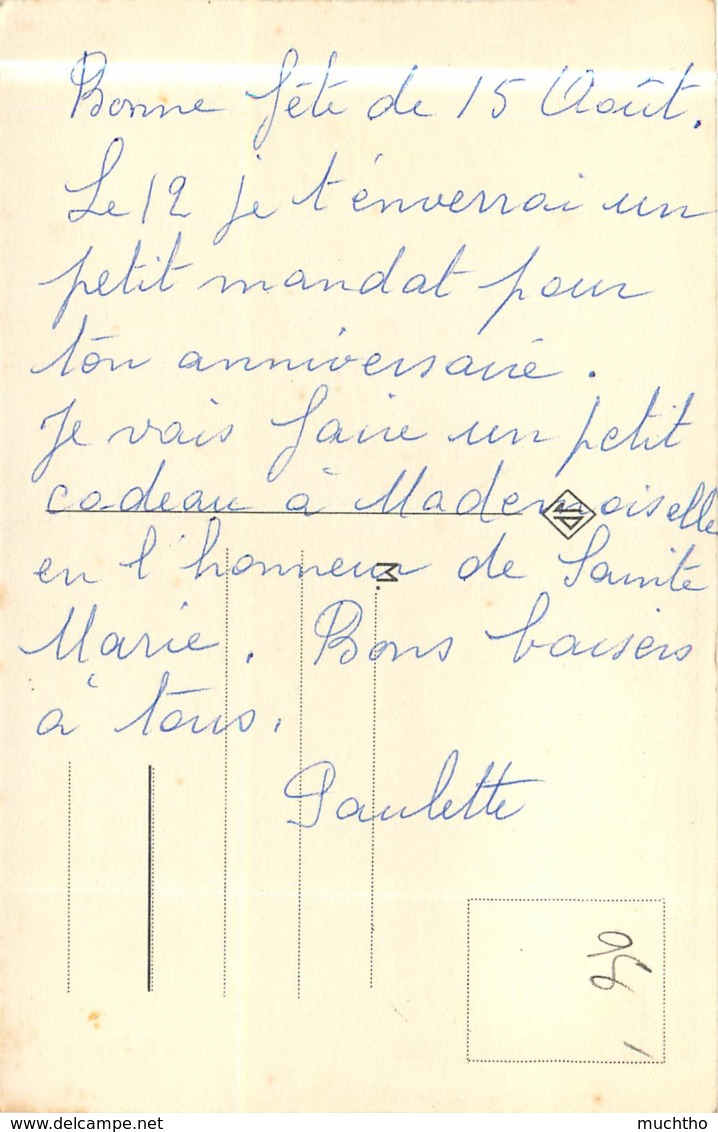 Bonne fête de 15 Août.
Le 12 je t'énverrai un
petit mandat pour
ton anniversaire.
Je vais faire un petit
cadeau à Mademoiselle
en l'honneur de Sainte
Marie. Bons baisers
à tous.
Paulette
M.
delcampe.net
muchtho